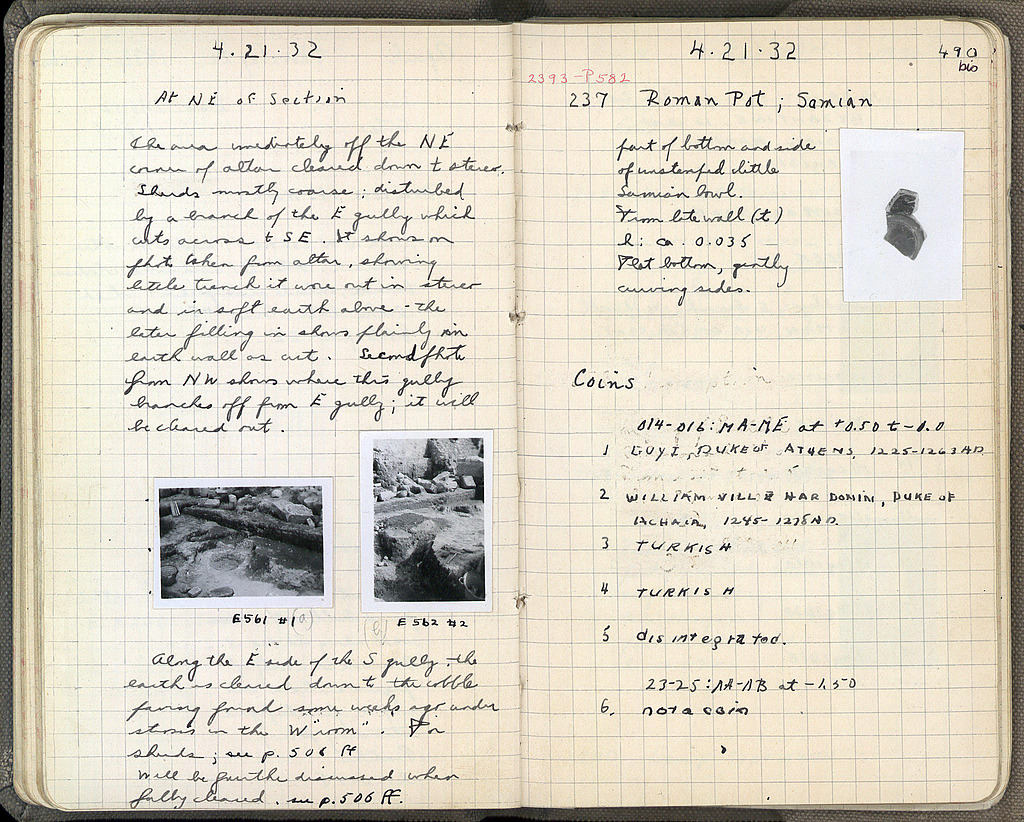 4.21.32
At NE of Section
The area immediately off the NE
corner of altar cleared down to stereo.
Sherds mostly coarse; disturbed
by a branch of the E gully which
cuts across to SE. It shows on
photo taken from altar, showing
little trench it wore out in stereo
and in soft earth above - the
later filling in shows plainly in
earth wall as cut. Second photo
from NW shows where this gully
branches off from E gully; it will
be cleared out.
E561 #1 (a)
(b) E562 #2
Along the E side of the S gully, the
earth is cleared down to the cobble
paving found some weeks ago under
in the W "room". For
sherds; see p. 506 ff
Will be further discussed when
fully cleared. see p. 506 ff.
4.21.32
490
bis
2393-P582
237 Roman Pot; Samian
part of bottom and side
of unstamped little
Samian bowl.
From late wall (t)
h: ca. 0.035
Flat bottom, gently
curving sides.
Coins
014-016: MA-ME at +0.50 to -0.0
1 GUY I, DUKE OF ATHENS, 1225-1263 AD
2 WILLIAM VILLE HARDOUIN, DUKE OF
ACHAIA, 1245-1278 AD.
3 TURKISH
4 TURKISH
5 disintegrated.
23-25: AA-AB at -1.50
6. not a coin